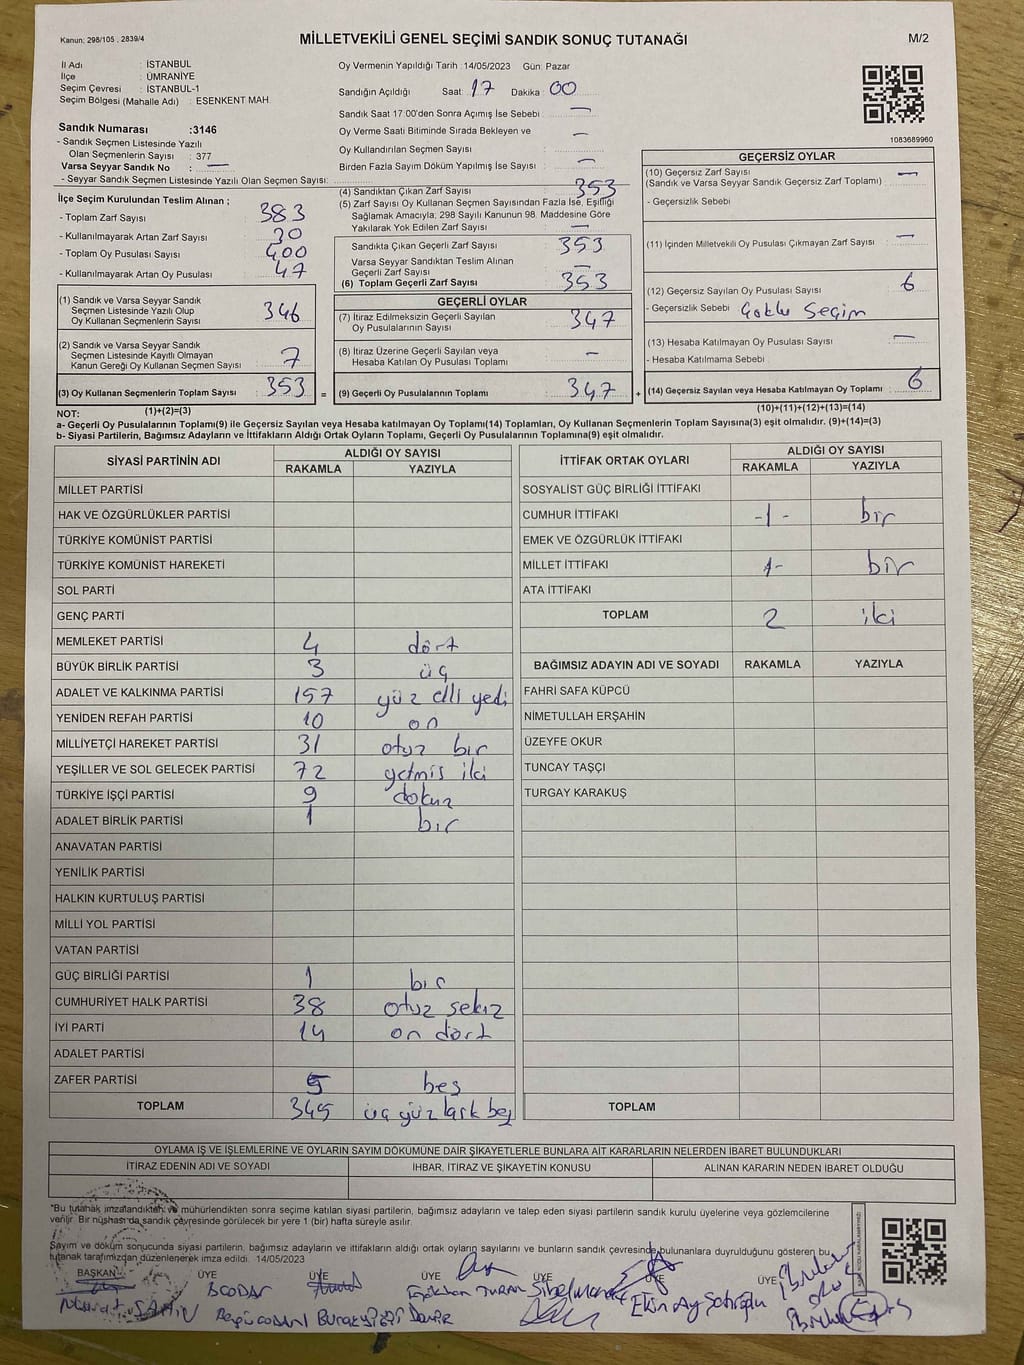 Kanun: 298/105 , 2839/4
MİLLETVEKİLİ GENEL SEÇİMİ SANDIK SONUÇ TUTANAĞI
M/2
İl Adı : İSTANBUL
İlçe : ÜMRANİYE
Seçim Çevresi : İSTANBUL-1
Seçim Bölgesi (Mahalle Adı) : ESENKENT MAH.
Sandık Numarası :3146
- Sandık Seçmen Listesinde Yazılı
Olan Seçmenlerin Sayısı : 377
Varsa Seyyar Sandık No : —
- Seyyar Sandık Seçmen Listesinde Yazılı Olan Seçmen Sayısı:
Oy Vermenin Yapıldığı Tarih :14/05/2023 Gün: Pazar
Sandığın Açıldığı Saat 17 Dakika : 00
Sandık Saat 17:00'den Sonra Açımış İse Sebebi : —
Oy Verme Saati Bitiminde Sırada Bekleyen ve —
Oy Kullandırılan Seçmen Sayısı
Birden Fazla Sayım Döküm Yapılmış İse Sayısı : —
1083689960
İlçe Seçim Kurulundan Teslim Alınan ;
- Toplam Zarf Sayısı : 383
- Kullanılmayarak Artan Zarf Sayısı : 30
- Toplam Oy Pusulası Sayısı : 400
- Kullanılmayarak Artan Oy Pusulası : 47
(1) Sandık ve Varsa Seyyar Sandık
Seçmen Listesinde Yazılı Olup
Oy Kullanan Seçmenlerin Sayısı : 346
(2) Sandık ve Varsa Seyyar Sandık
Seçmen Listesinde Kayıtlı Olmayan
Kanun Gereği Oy Kullanan Seçmen Sayısı : 7
(3) Oy Kullanan Seçmenlerin Toplam Sayısı : 353 =
(4) Sandıktan Çıkan Zarf Sayısı : 353
(5) Zarf Sayısı Oy Kullanan Seçmen Sayısından Fazla İse, Eşitliği
Sağlamak Amacıyla, 298 Sayılı Kanunun 98. Maddesine Göre
Yakılarak Yok Edilen Zarf Sayısı : —
Sandıkta Çıkan Geçerli Zarf Sayısı : 353
Varsa Seyyar Sandıktan Teslim Alınan
Geçerli Zarf Sayısı : —
(6) Toplam Geçerli Zarf Sayısı : 353
GEÇERLİ OYLAR
(7) İtiraz Edilmeksizin Geçerli Sayılan
Oy Pusulalarının Sayısı : 347
(8) İtiraz Üzerine Geçerli Sayılan veya
Hesaba Katılan Oy Pusulası Toplamı : —
(9) Geçerli Oy Pusulalarının Toplamı : 347 +
GEÇERSİZ OYLAR
(10) Geçersiz Zarf Sayısı : —
(Sandık ve Varsa Seyyar Sandık Geçersiz Zarf Toplamı)
- Geçersizlik Sebebi
(11) İçinden Milletvekili Oy Pusulası Çıkmayan Zarf Sayısı : —
(12) Geçersiz Sayılan Oy Pusulası Sayısı : 6
- Geçersizlik Sebebi Çoklu Seçim
(13) Hesaba Katılmayan Oy Pusulası Sayısı : —
- Hesaba Katılmama Sebebi
(14) Geçersiz Sayılan veya Hesaba Katılmayan Oy Toplamı : 6
NOT: (1)+(2)=(3) (10)+(11)+(12)+(13)=(14)
a- Geçerli Oy Pusulalarının Toplamı(9) ile Geçersiz Sayılan veya Hesaba Katılmayan Oy Toplamı(14) Toplamları, Oy Kullanan Seçmenlerin Toplam Sayısına(3) eşit olmalıdır. (9)+(14)=(3)
b- Siyasi Partilerin, Bağımsız Adayların ve İttifakların Aldığı Ortak Oyların Toplamı, Geçerli Oy Pusulalarının Toplamına(9) eşit olmalıdır.
SİYASİ PARTİNİN ADI ALDIĞI OY SAYISI
RAKAMLA YAZIYLA
MİLLET PARTİSİ
HAK VE ÖZGÜRLÜKLER PARTİSİ
TÜRKİYE KOMÜNİST PARTİSİ
TÜRKİYE KOMÜNİST HAREKETİ
SOL PARTİ
GENÇ PARTİ
MEMLEKET PARTİSİ 4 dört
BÜYÜK BİRLİK PARTİSİ 3 üç
ADALET VE KALKINMA PARTİSİ 157 yüz elli yedi
YENİDEN REFAH PARTİSİ 10 on
MİLLİYETÇİ HAREKET PARTİSİ 31 otuz bir
YEŞİLLER VE SOL GELECEK PARTİSİ 72 yetmiş iki
TÜRKİYE İŞÇİ PARTİSİ 9 dokuz
ADALET BİRLİK PARTİSİ 1 bir
ANAVATAN PARTİSİ
YENİLİK PARTİSİ
HALKIN KURTULUŞ PARTİSİ
MİLLİ YOL PARTİSİ
VATAN PARTİSİ
GÜÇ BİRLİĞİ PARTİSİ 1 bir
CUMHURİYET HALK PARTİSİ 38 otuz sekiz
İYİ PARTİ 14 on dört
ADALET PARTİSİ
ZAFER PARTİSİ 5 beş
TOPLAM 345 üç yüz kırk beş
İTTİFAK ORTAK OYLARI ALDIĞI OY SAYISI
RAKAMLA YAZIYLA
SOSYALİST GÜÇ BİRLİĞİ İTTİFAKI
CUMHUR İTTİFAKI -1- bir
EMEK VE ÖZGÜRLÜK İTTİFAKI
MİLLET İTTİFAKI 1- bir
ATA İTTİFAKI
TOPLAM 2 iki
BAĞIMSIZ ADAYIN ADI VE SOYADI RAKAMLA YAZIYLA
FAHRİ SAFA KÜPCÜ
NİMETULLAH ERŞAHİN
ÜZEYFE OKUR
TUNCAY TAŞÇI
TURGAY KARAKUŞ
TOPLAM
OYLAMA İŞ VE İŞLEMLERİNE VE OYLARIN SAYIM DÖKÜMÜNE DAİR ŞİKAYETLERLE BUNLARA AİT KARARLARIN NELERDEN İBARET BULUNDUKLARI
İTİRAZ EDENİN ADI VE SOYADI İHBAR, İTİRAZ VE ŞİKAYETİN KONUSU ALINAN KARARIN NEDEN İBARET OLDUĞU
"Bu tutanak imzalandıktan ve mühürlendikten sonra seçime katılan siyasi partilerin, bağımsız adayların ve talep eden siyasi partilerin sandık kurulu üyelerine veya gözlemcilerine
verilir. Bir nüshası da sandık çevresinde görülecek bir yere 1 (bir) hafta süreyle asılır.
Sayım ve döküm sonucunda siyasi partilerin, bağımsız adayların ve ittifakların aldığı ortak oyların sayılarını ve bunların sandık çevresinde bulunanlara duyrulduğunu gösteren bu
tutanak tarafımızdan düzenlenerek imza edildi. 14/05/2023
BAŞKAN ÜYE ÜYE ÜYE ÜYE ÜYE ÜYE
Murat ŞAHİN
Gökhan TURAN